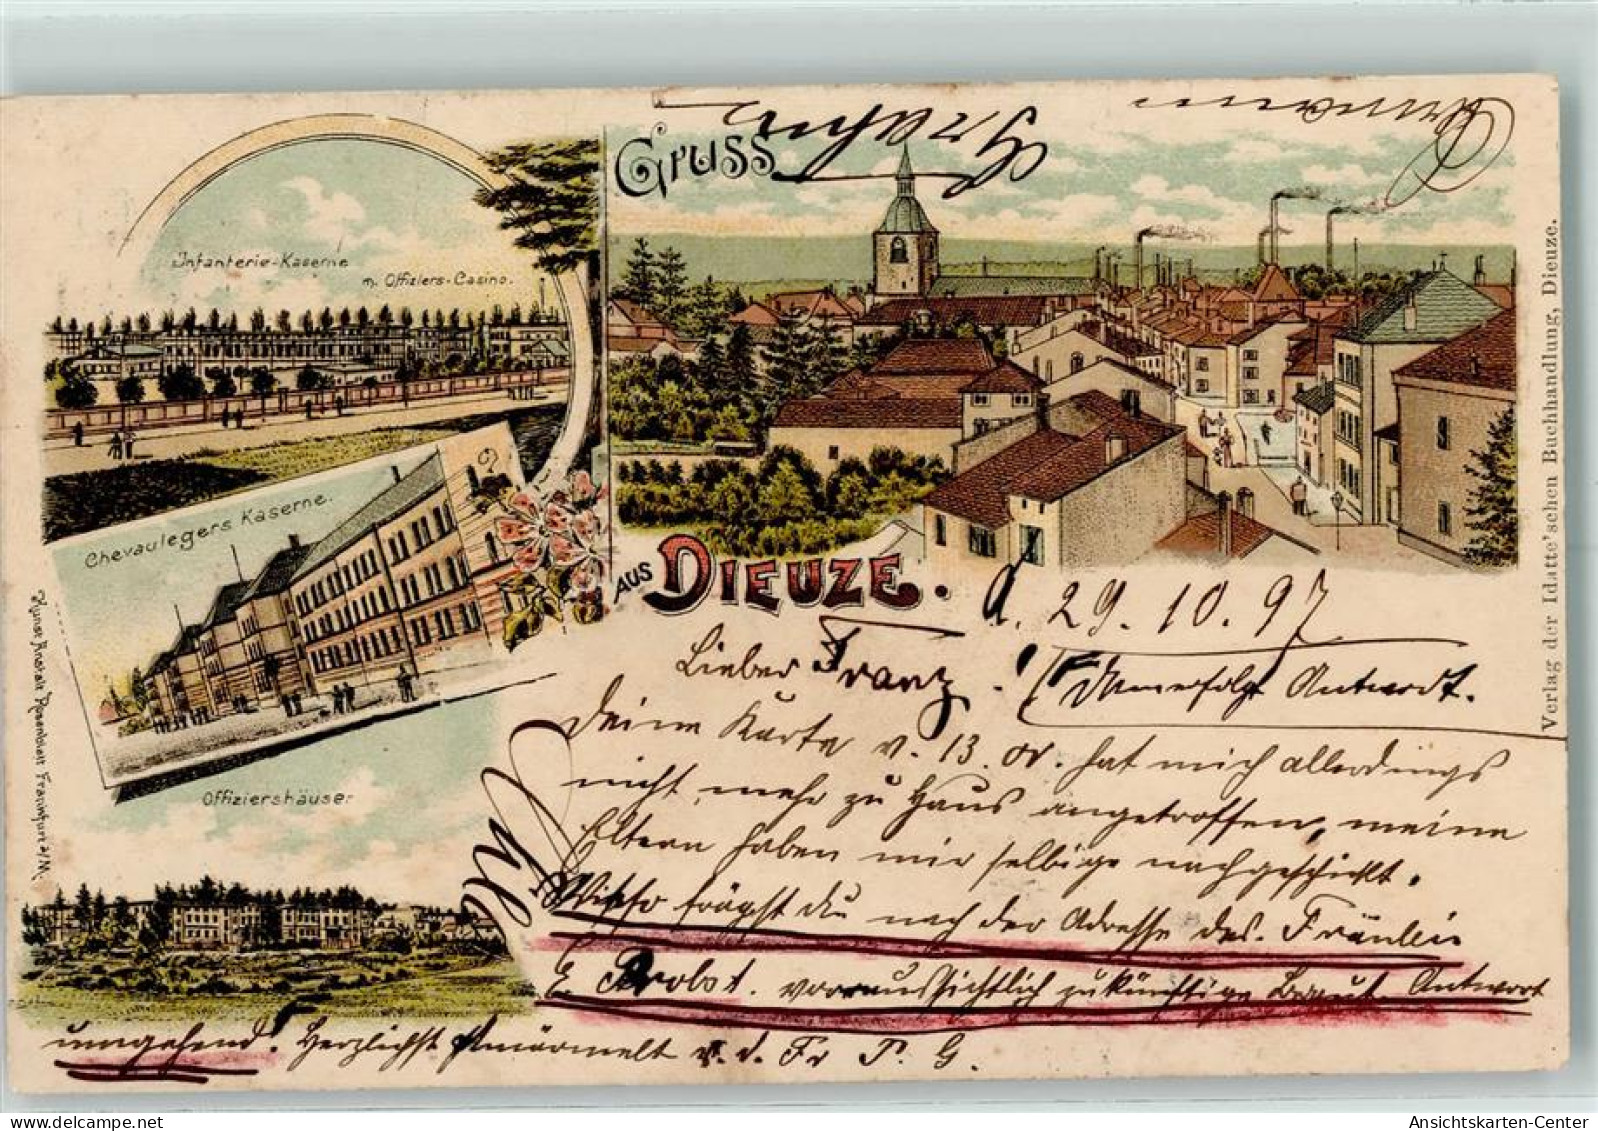 Gruss
aus Dieuze.
Infanterie-Kaserne
m. Offiziers-Casino.
Chevaulegers Kaserne.
Offiziershäuser
Kunst Anstalt Rosenblatt Frankfurt a/M.
Verlag der Idatte'schen Buchhandlung, Dieuze.
d. 29. 10. 97
Lieber Franz! Antwort.
Deine Karte v. 13. hat mich allerdings
nicht mehr zu Haus angetroffen, meine
Eltern haben mir selbige nachgeschickt.
frägst du nach der Adresse des Fräulein
E. Probst. voraussichtlich zukünftige Braut. Antwort
umgehend. Herzlichst v. d. Fr P. G.
Ansichtskarten-Center